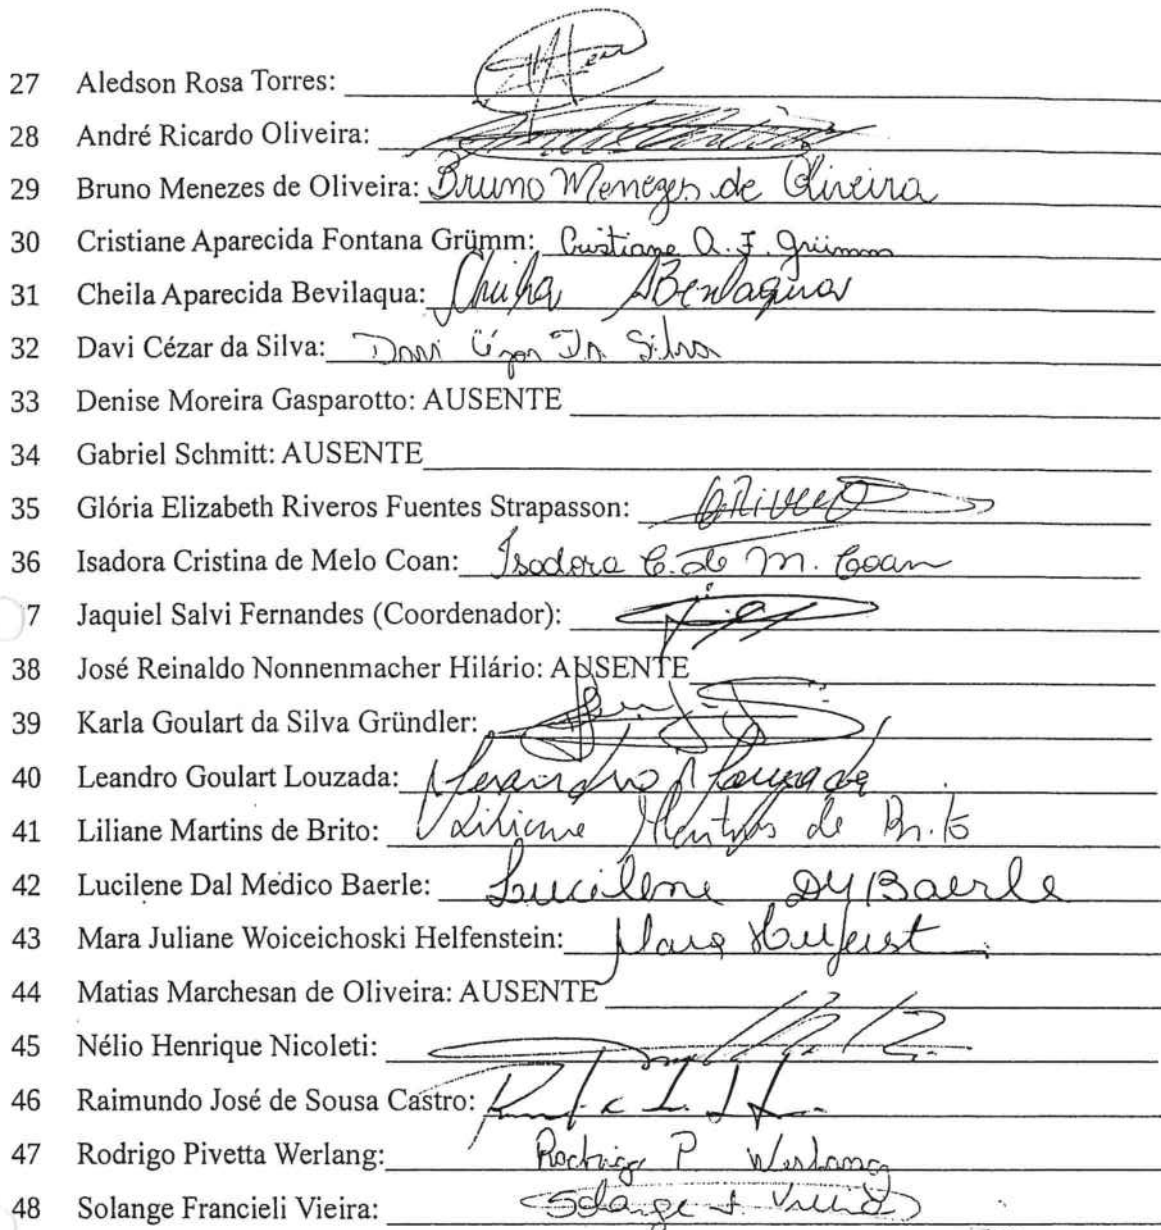 27 Aledson Rosa Torres:
28 André Ricardo Oliveira:
29 Bruno Menezes de Oliveira: Bruno Menezes de Oliveira
30 Cristiane Aparecida Fontana Grümm: Cristiane A. F. Grümm
31 Cheila Aparecida Bevilaqua: Cheila ABevilaqua
32 Davi Cézar da Silva: Davi Cézar Da Silva
33 Denise Moreira Gasparotto: AUSENTE
34 Gabriel Schmitt: AUSENTE
35 Glória Elizabeth Riveros Fuentes Strapasson: GRivero
36 Isadora Cristina de Melo Coan: Isadora C. de M. Coan
7 Jaquiel Salvi Fernandes (Coordenador):
38 José Reinaldo Nonnenmacher Hilário: AUSENTE
39 Karla Goulart da Silva Gründler:
40 Leandro Goulart Louzada: Leandro Louzada
41 Liliane Martins de Brito: Liliane Martins de Brito
42 Lucilene Dal Medico Baerle: Lucilene DMBaerle
43 Mara Juliane Woiceichoski Helfenstein: Mara
44 Matias Marchesan de Oliveira: AUSENTE
45 Nélio Henrique Nicoleti:
46 Raimundo José de Sousa Castro:
47 Rodrigo Pivetta Werlang: Rodrigo P Werlang
48 Solange Francieli Vieira: Solange F. Vieira